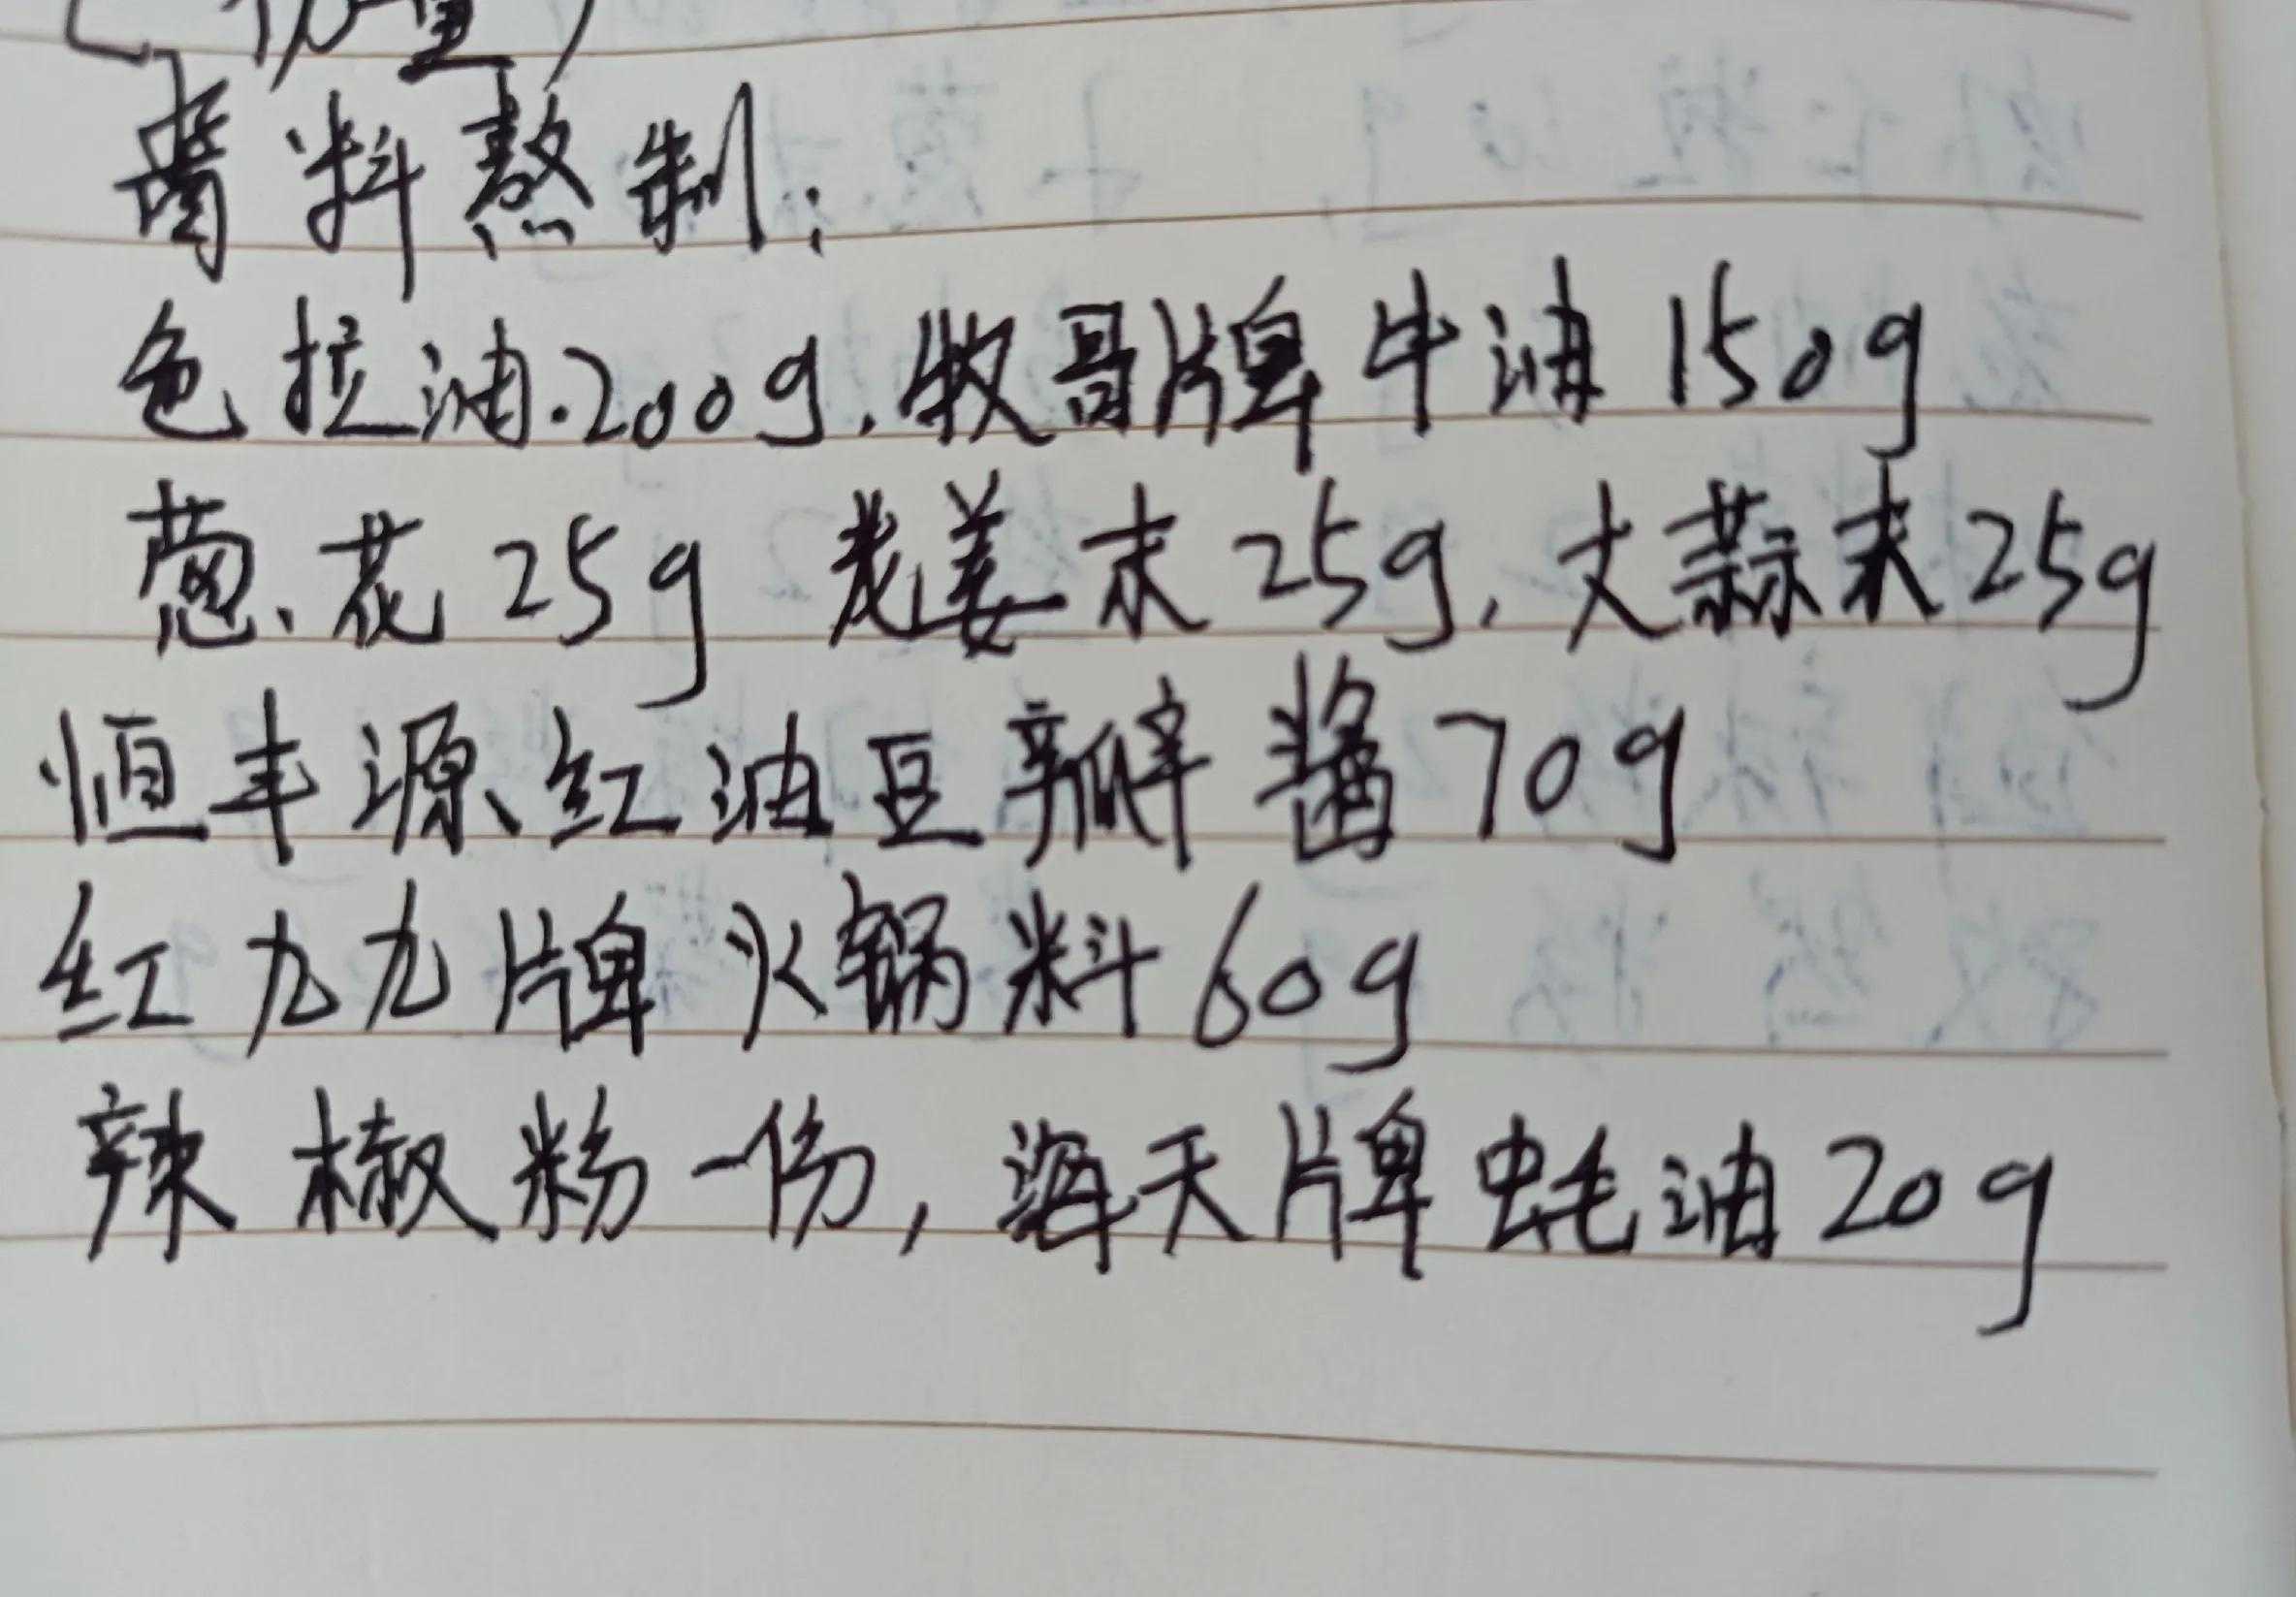 酱料熬制:
色拉油.200g.牧哥牌牛油150g
葱、花25g 老姜末25g,大蒜末25g
恒丰源红油豆瓣酱70g
红九九牌火锅料60g
辣椒粉一份,海天牌蚝油20g